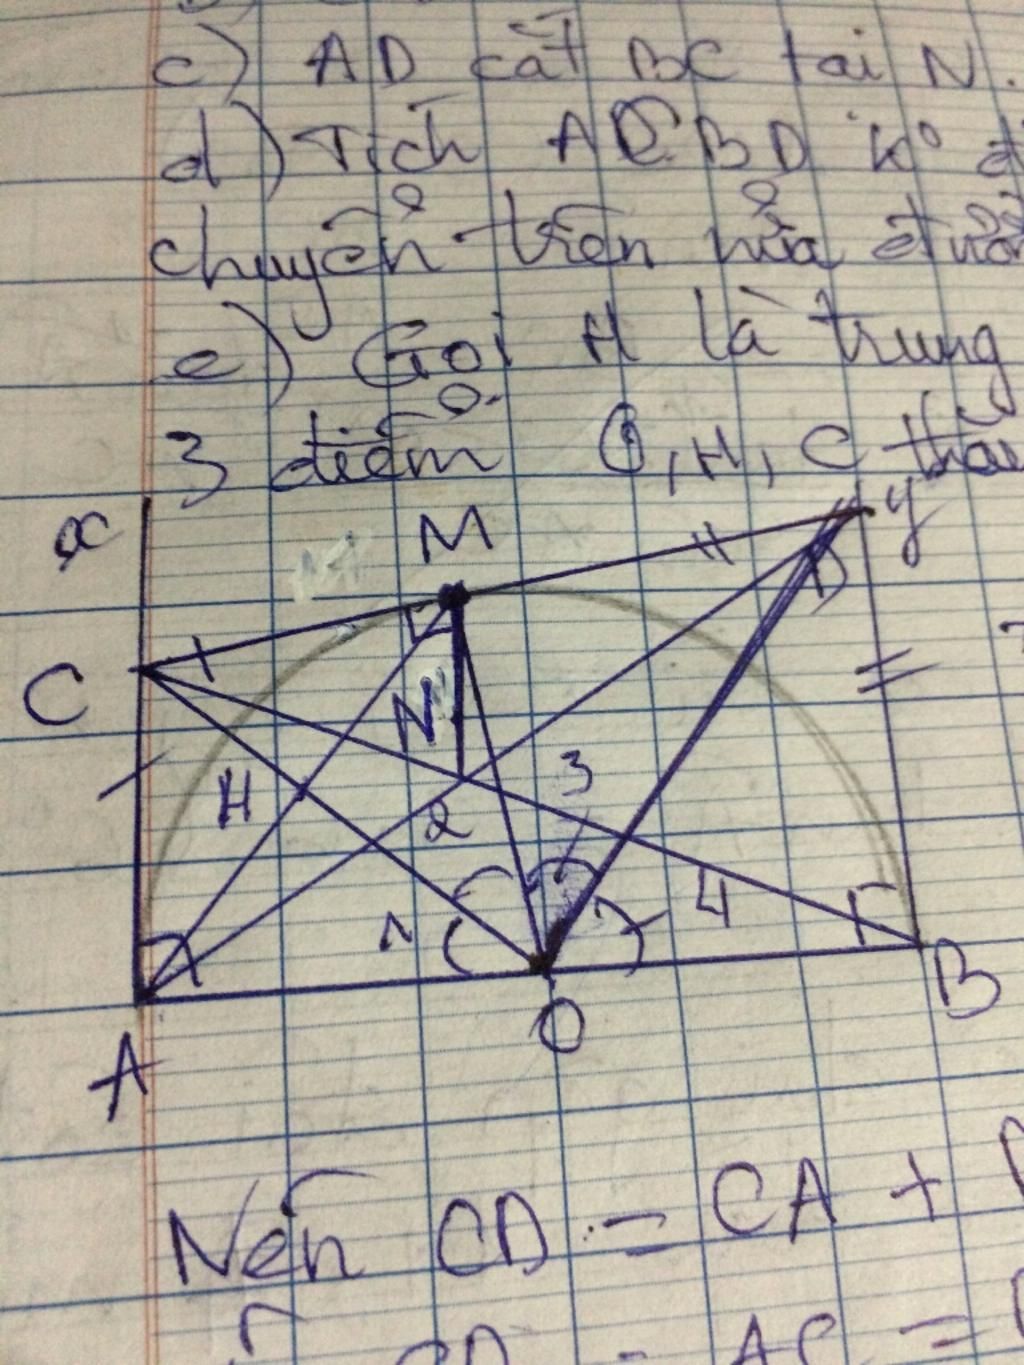 c) AD cắt BC tại N.
d) Tích AC.BD k°
chuyển trên nửa
e) Gọi H là trung
3 điểm O, H, C
x
M
y
C
N
H
3
2
1
4
D
A
O
B
Nên CD = CA +
AC =